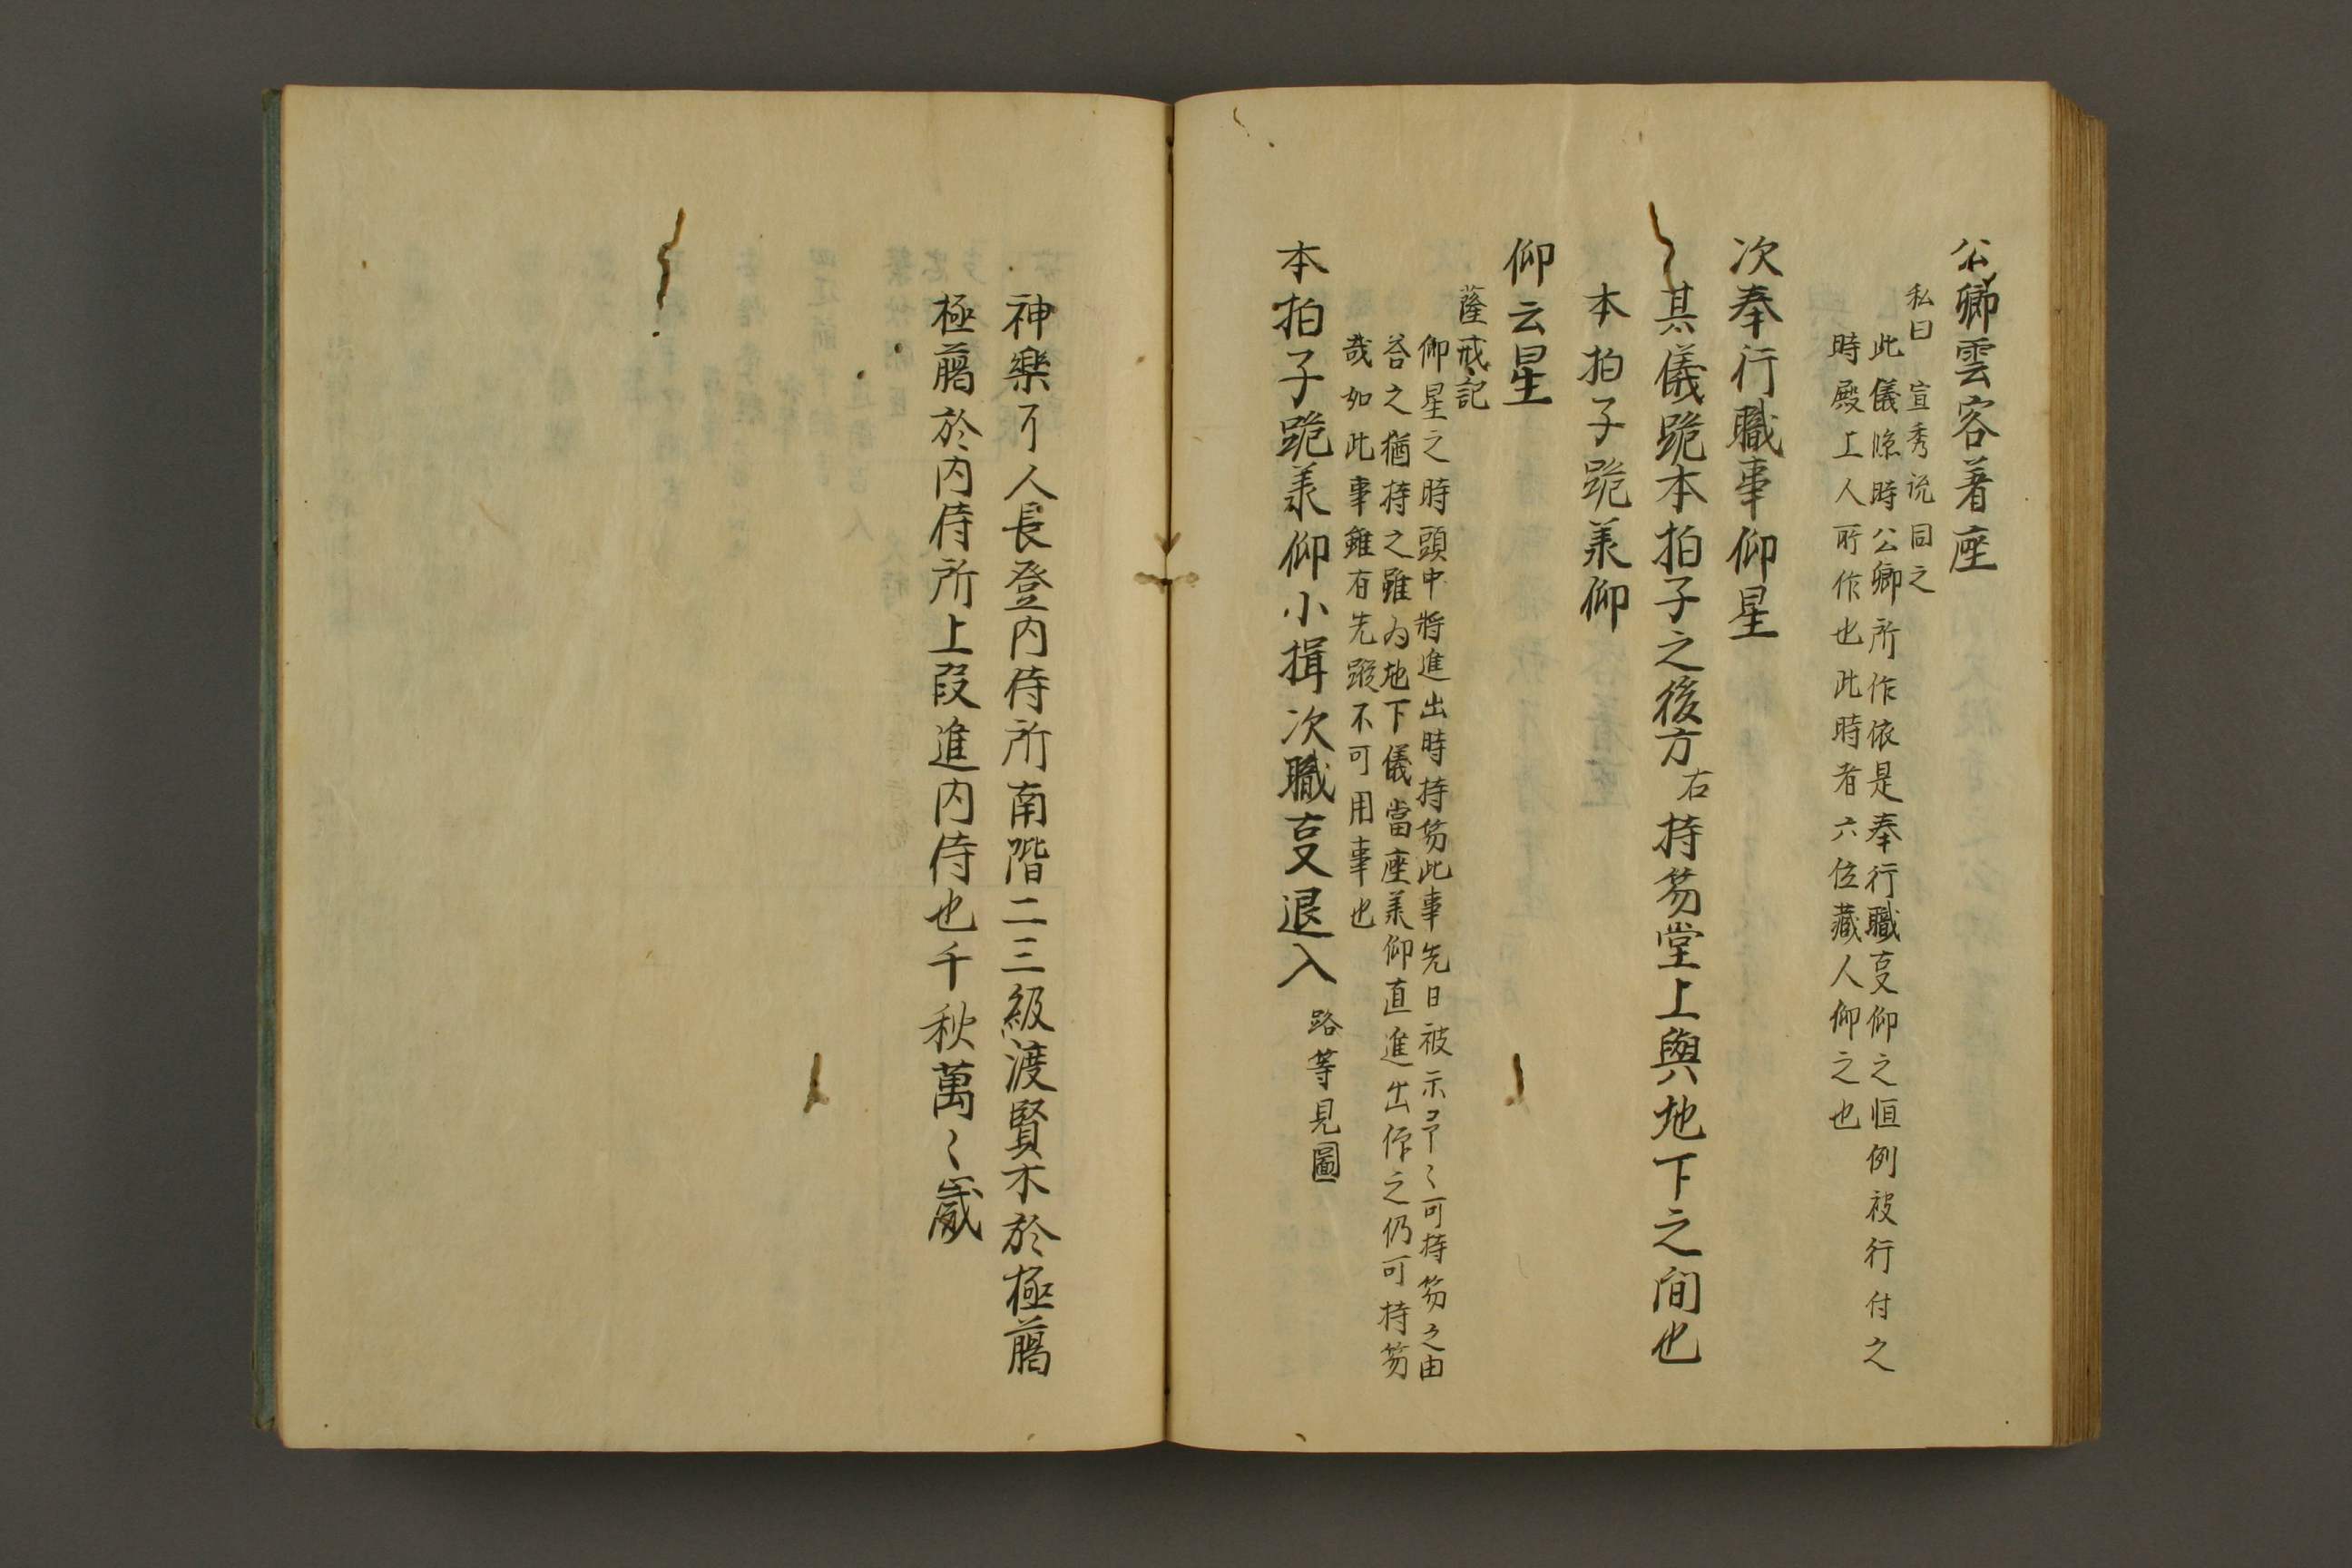 公卿雲客着座
私曰 宣秀説同之
此儀臨時公卿所作依是奉行職事仰之恒例被行付之
時殿上人所作也此時者六位蔵人仰之也
次奉行職事仰星
其儀跪本拍子之後方右持笏堂上與地下之間也
本拍子跪羕仰
仰云星
薩戒記
仰星之時頭中将進出時持笏此事先日被示予〻可持笏之由
答之猶持之雖為地下儀當座羕仰直進出作之仍可持笏
哉如此事雖有先蹤不可用事也
本拍子跪羕仰小揖次職事退入 路等見圖
神楽了人長登内侍所南階二三級渡賢木於極﨟
極﨟於内侍所上段進内侍也千秋萬〻歳